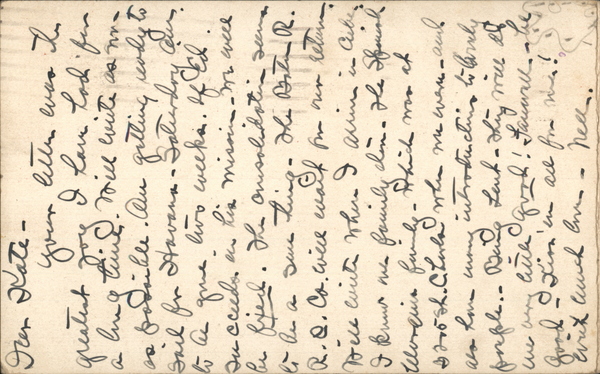 Dear Kate -
Your letter was the
greatest joy I have had for
a long time. Will write as soon
as possible. Am getting ready to
sail for Havana - Saturday Jan.
to be gone two weeks. If Ed.
succeeds in his mission - we will
be fixed. The consolidation seems
to be a sure thing - The Boston R.
R. & Co. will wait for our return.
Will write when I arrive in Cuba.
I know one family there - the Spanish
family - which was at
when we were - and
also have many introductions to lovely
people - Being Lent - they will do
me any little good! Farewell - be
good - Kiss 'em all for me!
With much love - Nell.